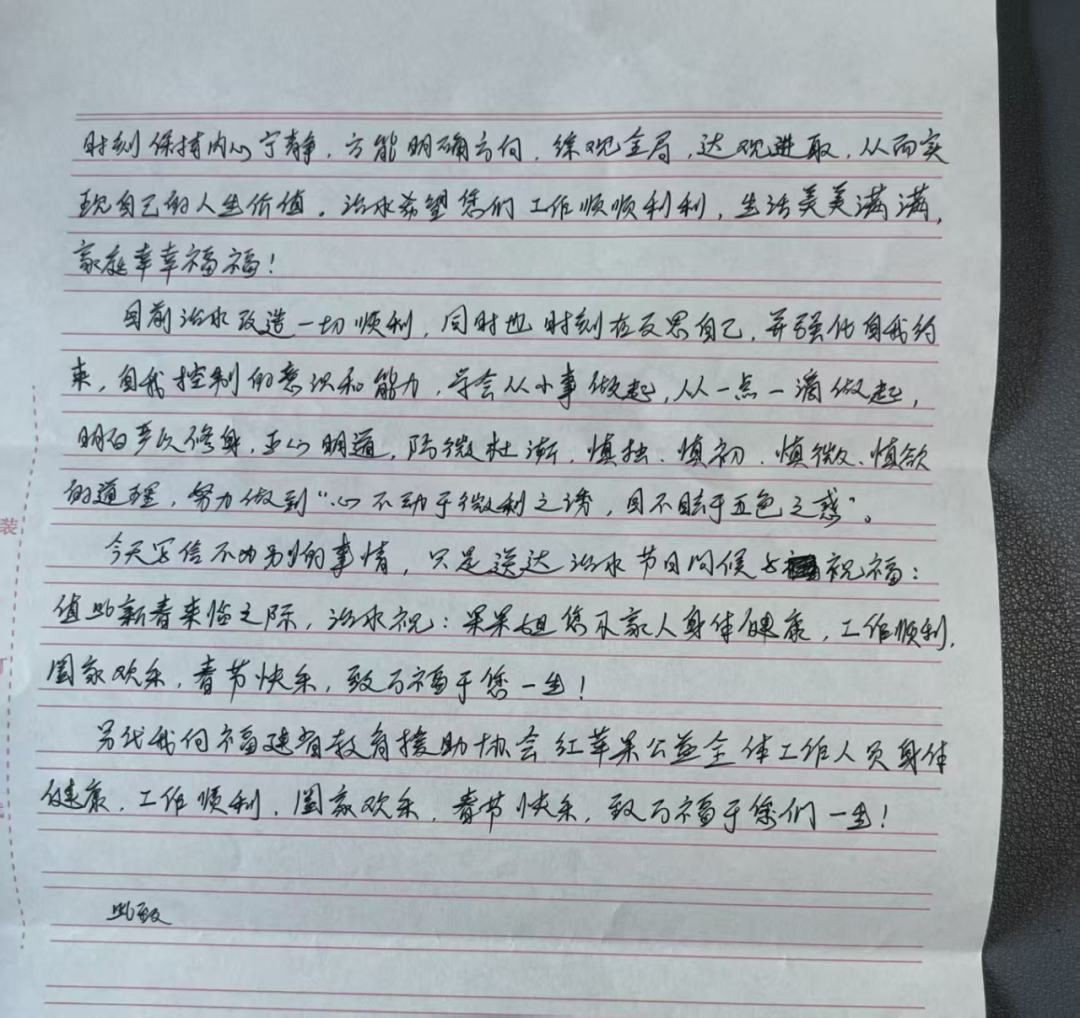 时刻保持内心宁静，方能明确方向，综观全局，达观进取，从而实
现自己的人生价值。治水希望您们工作顺顺利利，生活美美满满，
家庭幸幸福福！
目前治水改造一切顺利，同时也时刻在反思自己，并强化自我约
束，自我控制的意识和能力，学会从小事做起，从一点一滴做起，
明白严以修身，正心明道，防微杜渐，慎独、慎初、慎微、慎欲
的道理，努力做到“心不动于微利之诱，目不眩于五色之惑”。
今天写信不为别的事情，只是送达治水节日问候与祝福：
值此新春来临之际，治水祝：果果姐您及家人身体健康，工作顺利，
阖家欢乐，春节快乐，致万福于您一生！
另代我向福建省教育援助协会红苹果公益全体工作人员身体
健康，工作顺利，阖家欢乐，春节快乐，致万福于您们一生！
此致
装